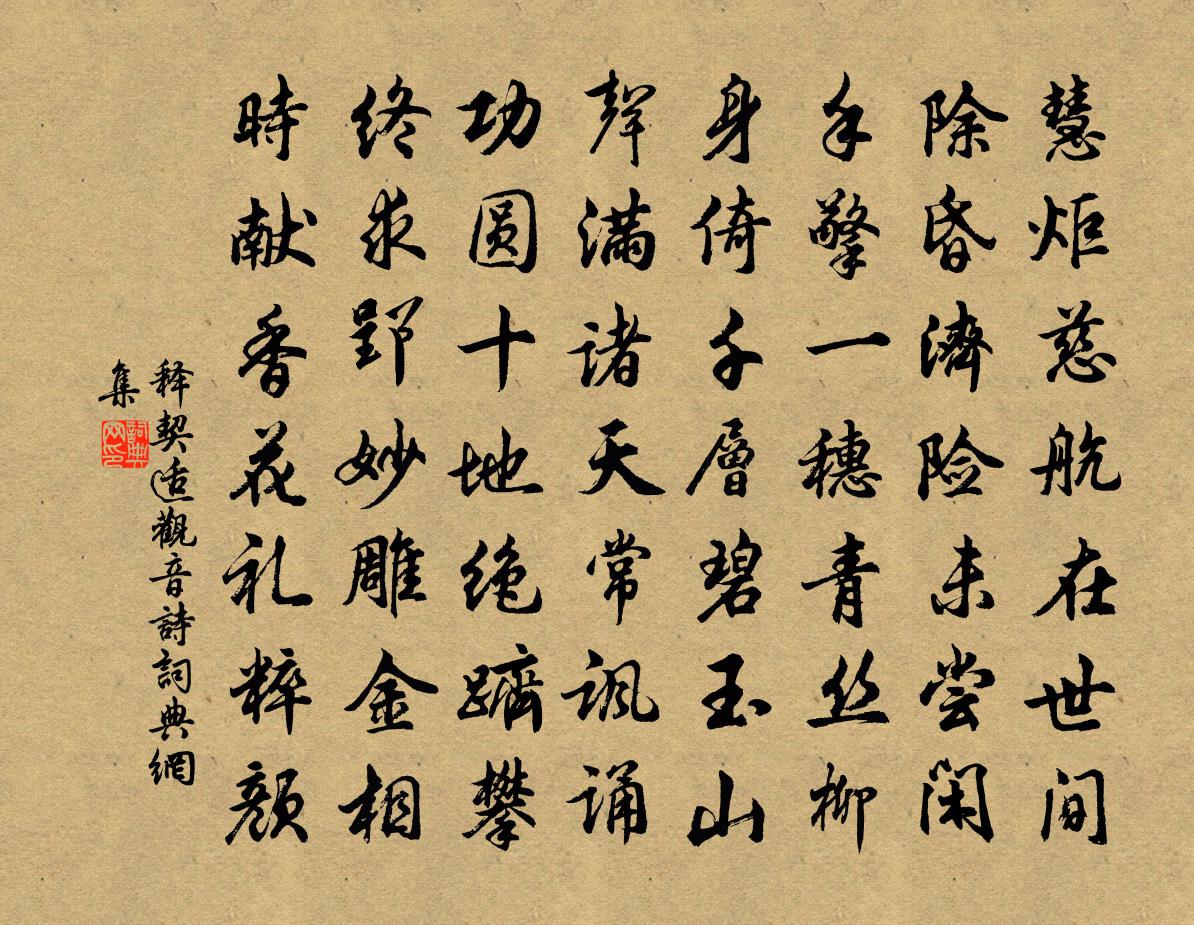 慧炬慈航在世间
除昏濟险未尝闲
手擎一穗青丝柳
身倚千層碧玉山
聲满诸天常讽诵
功圆十地绝躋攀
终求郢妙雕金相
時献香花礼粹颜
释契适觀音詩詞典網
集
詞典网印